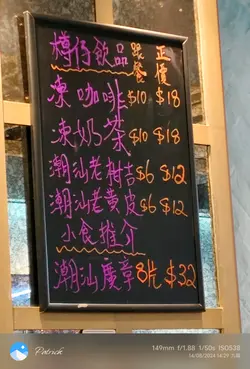 樽仔飲品 跟餐 正價
凍咖啡 $10 $18
凍奶茶 $10 $18
潮汕老柑吉 $6 $12
潮汕老黃皮 $6 $12
小食推介
潮汕廣章 8片 $32
Patrick
149mm f/1.88 1/50s ISO538
14/08/2024 14:09